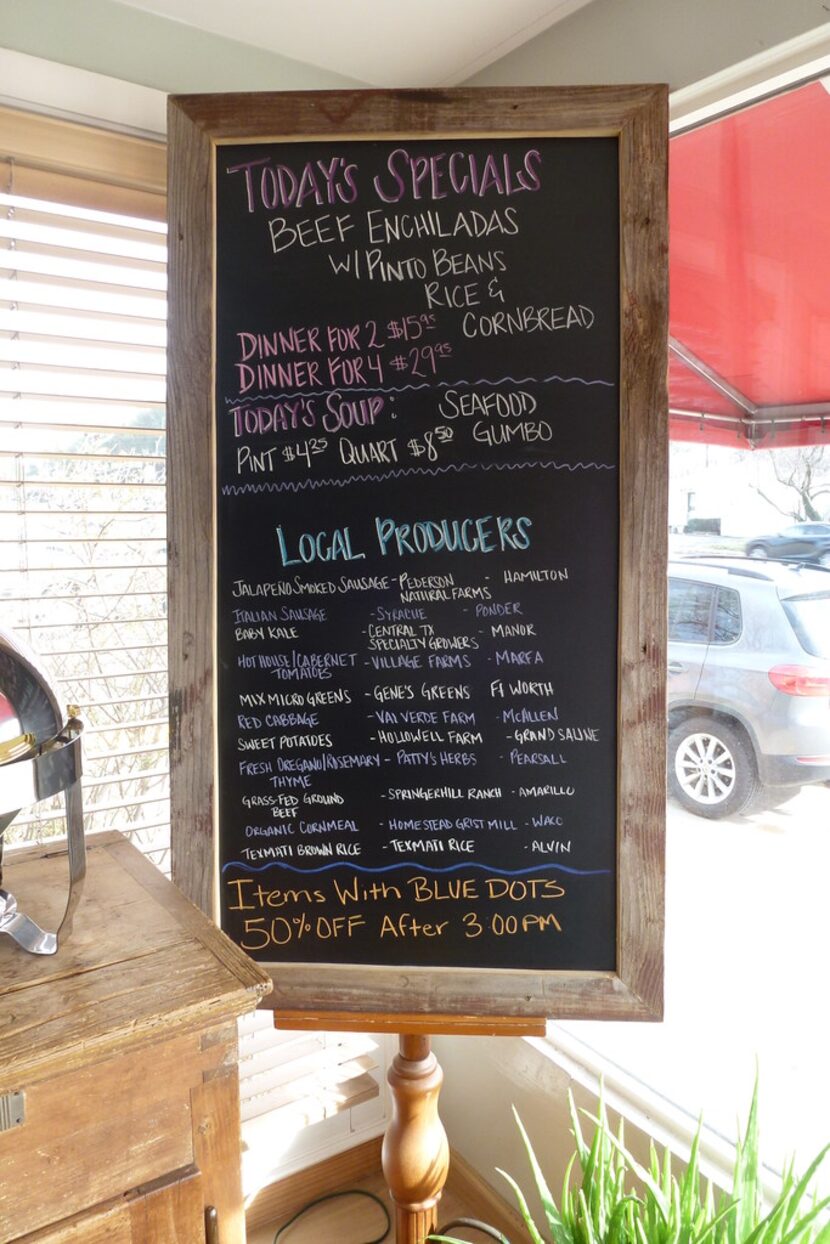 TODAY'S SPECIALS
BEEF ENCHILADAS
W/ PINTO BEANS
RICE &
CORNBREAD
DINNER FOR 2 $15.95
DINNER FOR 4 $29.95
TODAY'S SOUP: SEAFOOD
GUMBO
PINT $4.25 QUART $8.50
LOCAL PRODUCERS
JALAPEÑO SMOKED SAUSAGE - PEDERSON - HAMILTON
NATURAL FARMS
ITALIAN SAUSAGE - SYRACUE - PONDER
BABY KALE - CENTRAL TX - MANOR
SPECIALTY GROWERS
HOT HOUSE/CABERNET - VILLAGE FARMS - MARFA
TOMATOES
MIX MICRO GREENS - GENE'S GREENS FT WORTH
RED CABBAGE - VAL VERDE FARM - MCALLEN
SWEET POTATOES - HOLLOWELL FARM - GRAND SALINE
FRESH OREGANO/ROSEMARY - PATTY'S HERBS - PEARSALL
THYME
GRASS-FED GROUND - SPRINGERHILL RANCH - AMARILLO
BEEF
ORGANIC CORNMEAL - HOMESTEAD GRIST MILL - WACO
TEXMATI BROWN RICE - TEXMATI RICE - ALVIN
Items With BLUE DOTS
50% OFF After 3:00 PM